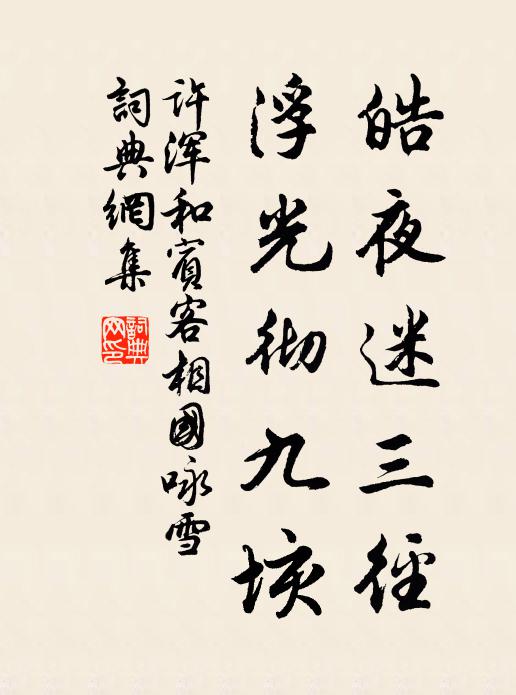 皓夜迷三径
浮光彻九垓
许浑和宾客相國咏雪
詞典網集
詞典网印